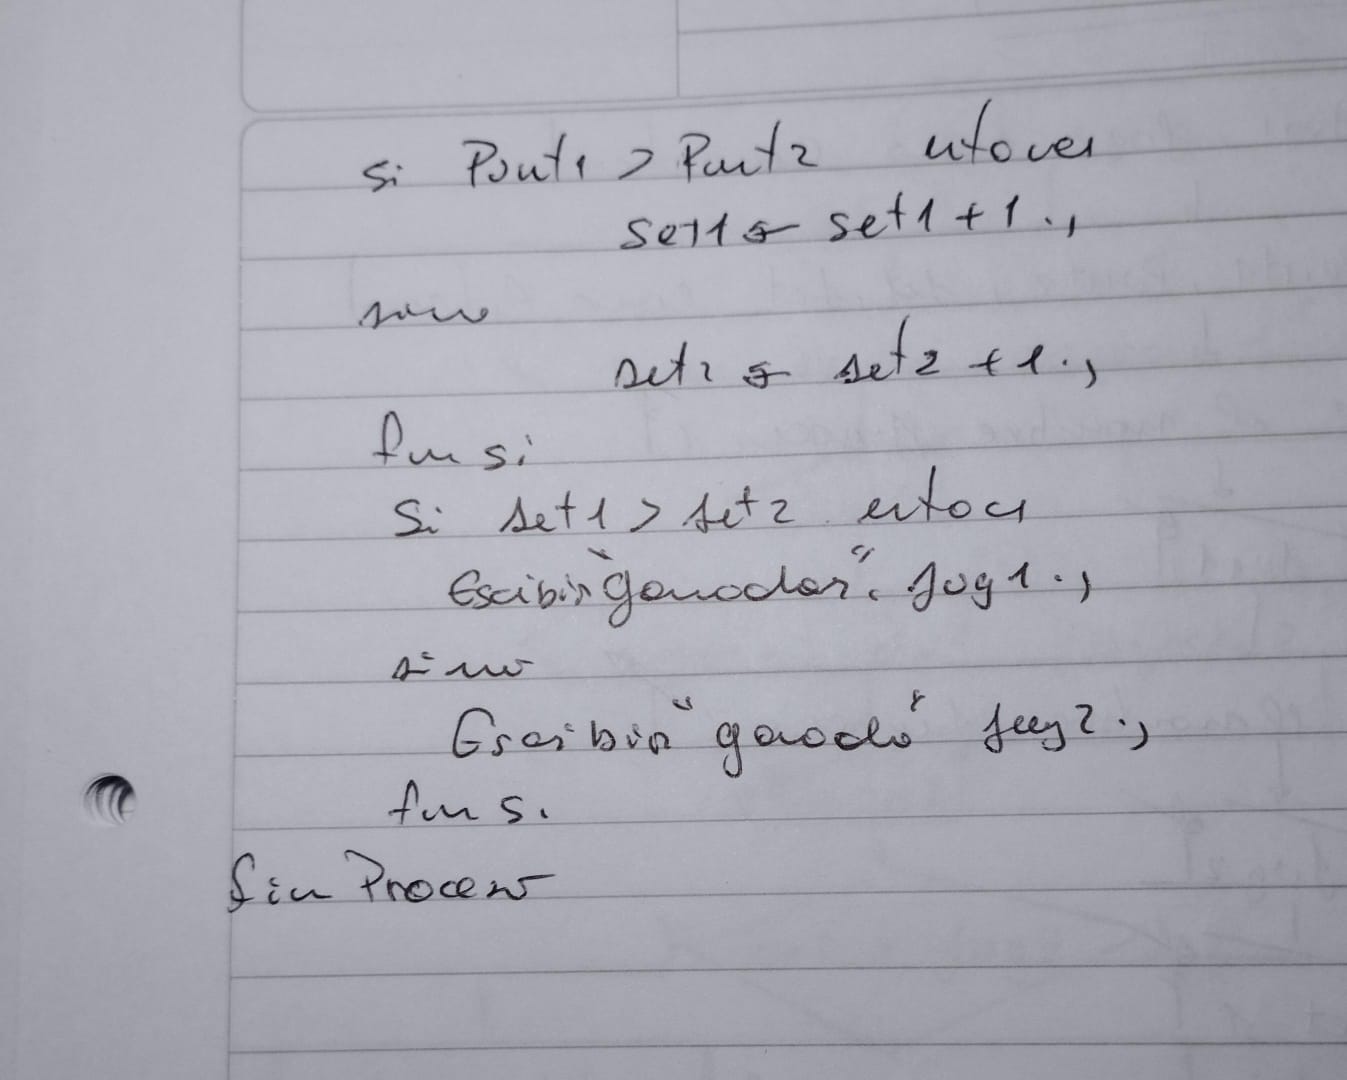 si Punt1 > Punt2 entonces
set1 ← set1 + 1.;
sino
set2 ← set2 + 1.;
fin si
Si set1 > set2 entoces
Escibir "ganador". Jug1.;
sino
Escribir "ganado" jug2.;
fin si
fin Proceso